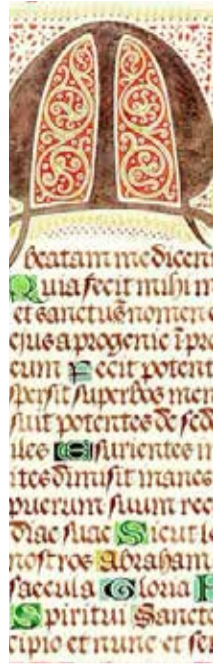 beatam me dicen
Quia fecit mihi m
et sanctū nomen e
ejus a progenie ī pro
eum Fecit potent
spersit superbos men
suit potentes de sed
iles Esurientes im
ites dimisit inanes
puerum suum rec
diae suae Sicut lo
nostros Abraham
saecula Gloria
Spiritui Sancto
cipio et nunc et sem